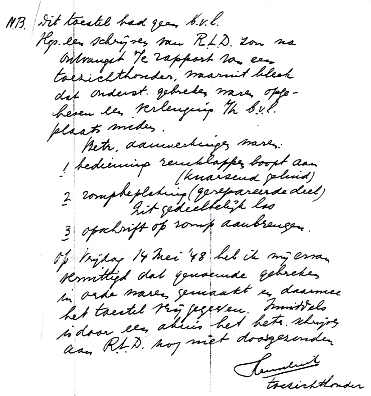 NB. dit toestel had geen b.v.l.
Hgs. een schrijven van R.L.D. zou na
ontvangst v/e rapport van een
toezichthouder, waaruit bleek
dat onderst. gebreken waren opge-
heven een verlenging v/h b.v.l.
plaats vinden.
Betr. aanmerkingen waren:
1 bediening remkleppen loopt aan
(knarsend geluid)
2 rompbeplating (gerepareerde deel)
zit gedeeltelijk los
3 opschrift op romp aanbrengen.
Op Vrijdag 14 Mei '48 heb ik mij ervan
vergewist dat genoemde gebreken
in orde waren gemaakt en daarmee
het toestel vrijgegeven. Inmiddels
is door een abuis het betr. schrijven
aan R.L.D. nog niet doorgezonden
toezichthouder